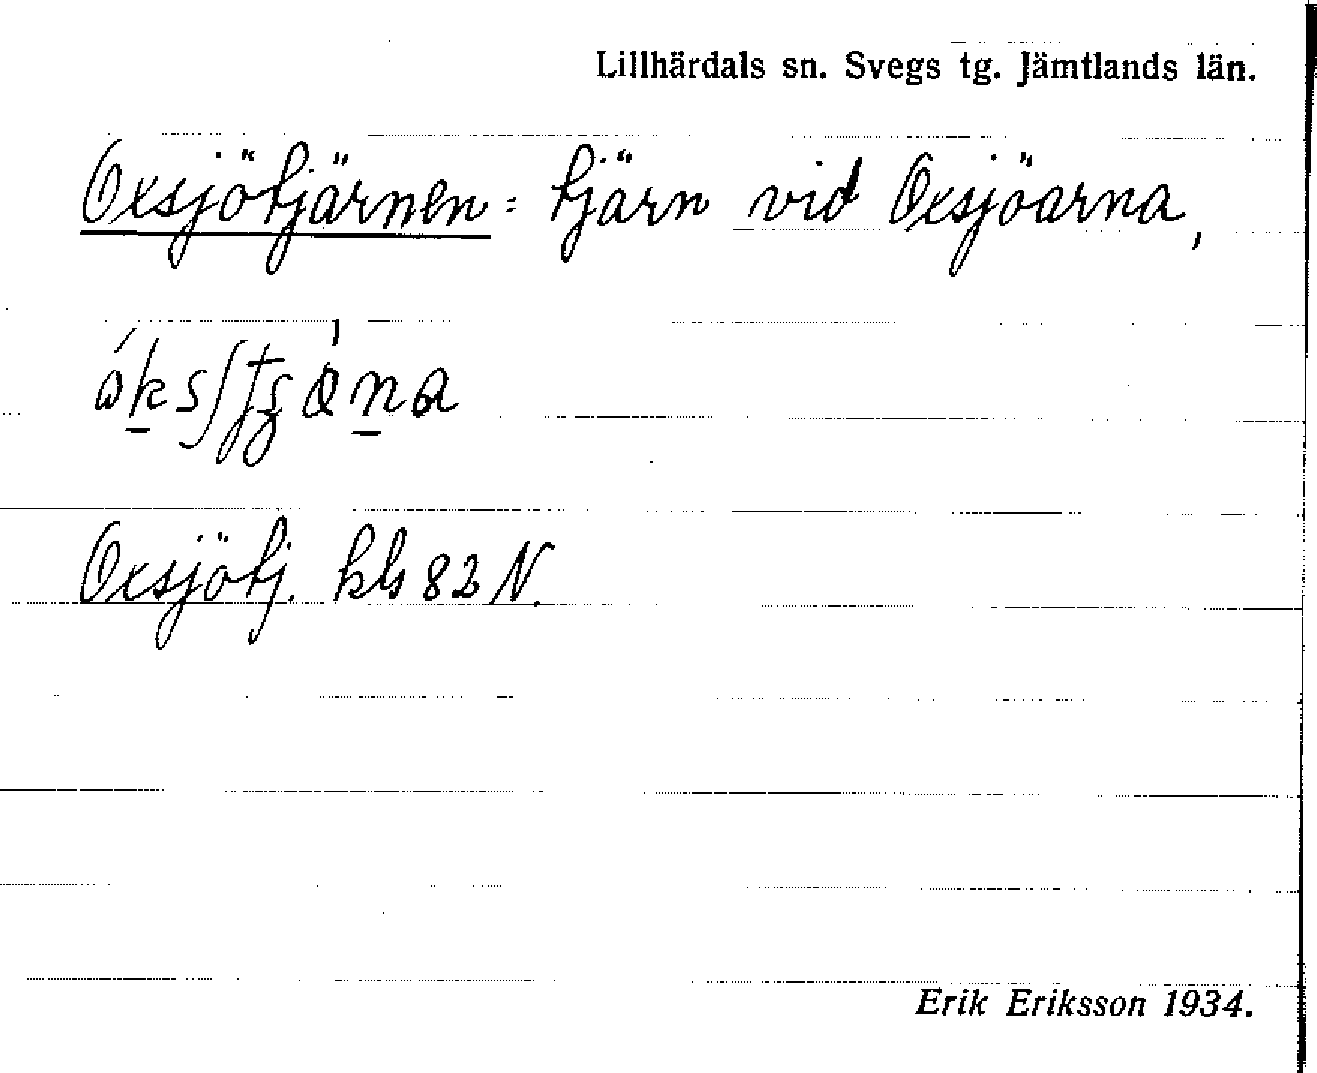 Lillhärdals sn. Svegs tg. Jämtlands län.
Oxsjötjärnen = tjärn vid Oxsjöarna,
Oxsjötj. kls 82 N.
Erik Eriksson 1934.